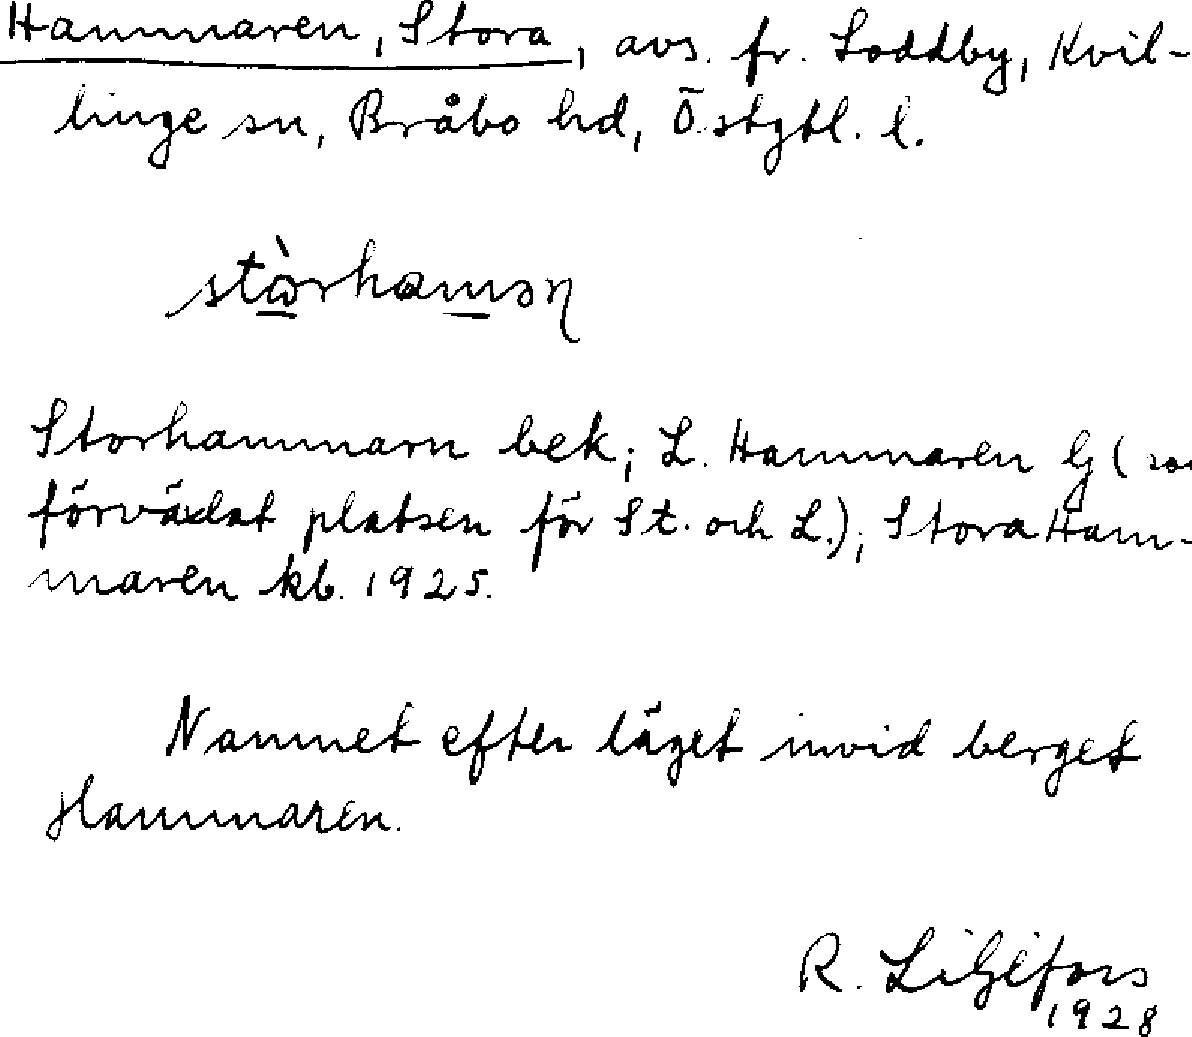 Hammaren, Stora, avs. fr. Loddby, Kvil-
linge sn, Bråbo hd, Östgtl. l.
Storhammarn bek; L. Hammaren G (
förväxlat platsen för St. och L.); Stora Ham-
maren kb. 1925.
Namnet efter läget invid berget
Hammaren.
R. Liljefors
1928